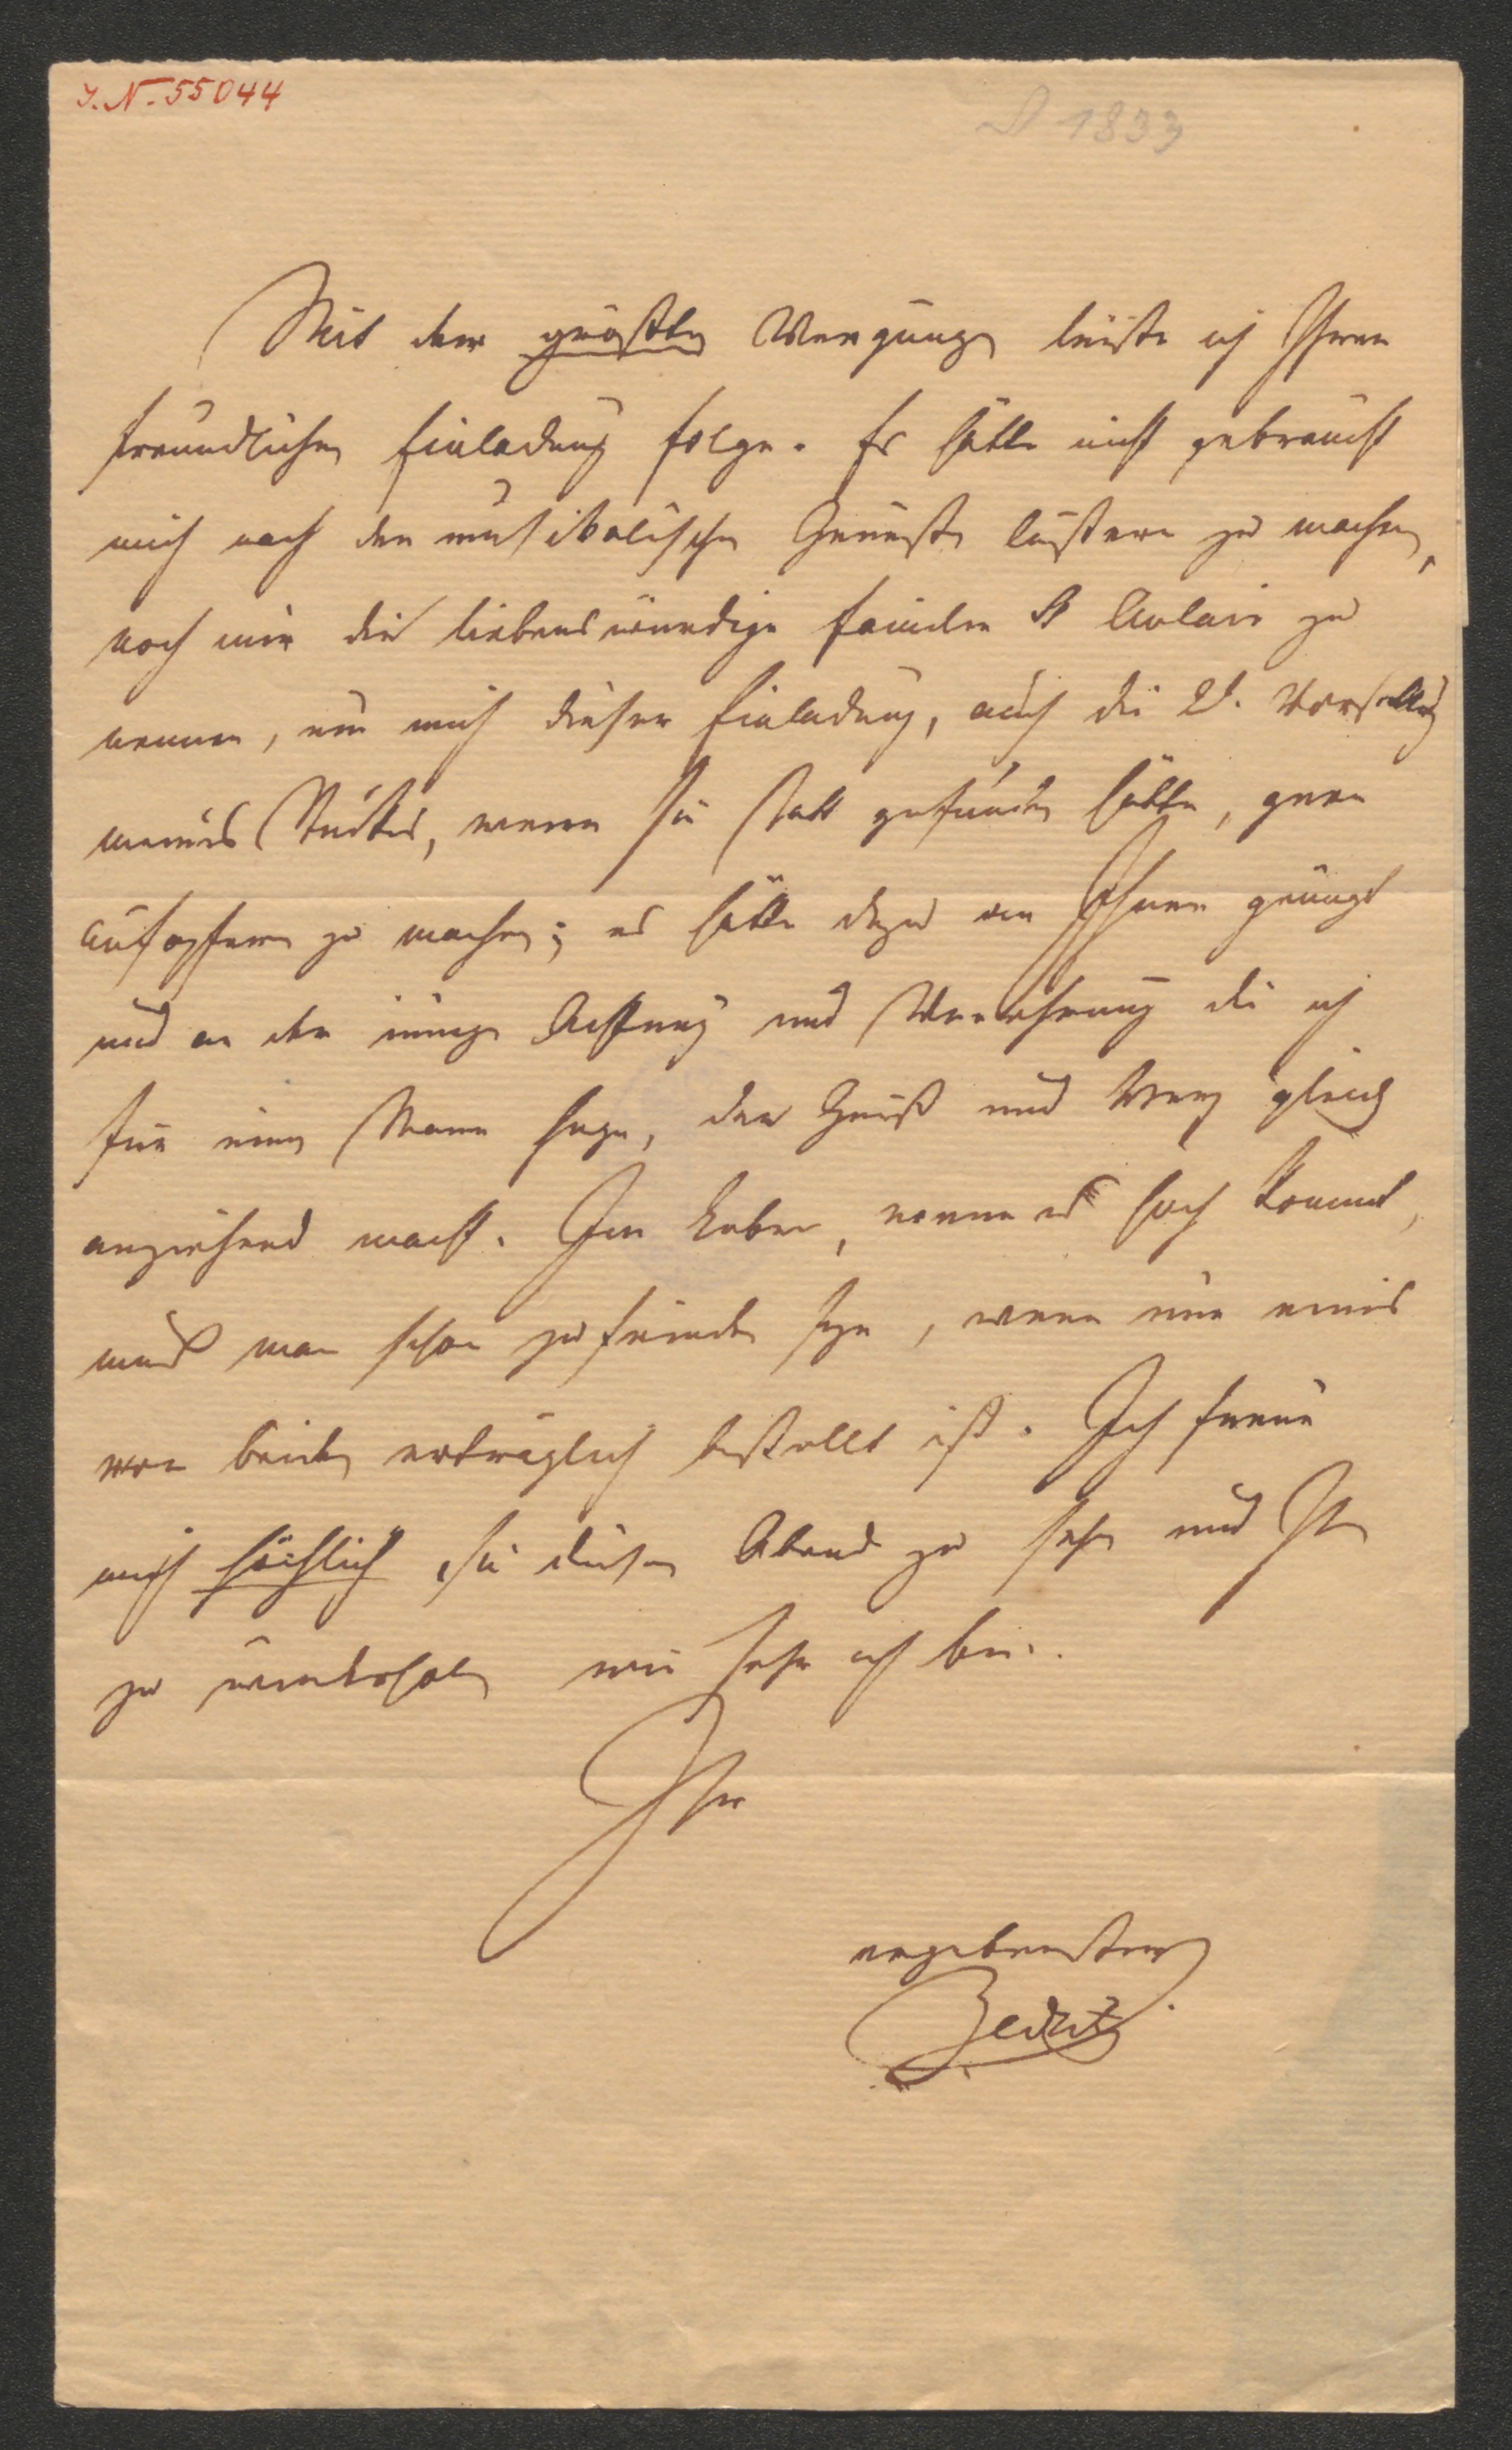 J. N. 55044
1833
Mit dem größten Vergnügen leiste ich Ihrer
freundlichen Einladung folge. Es hätte nicht gebraucht
mich nach den musikalischen Genüssen lüstern zu machen,
noch mir die liebenswürdige Familie St Aulair zu
nennen, um mich dieser Einladung, auch die 2t. Vorstellung
meines Stückes, wenn sie statt gefunden hätte, gern
aufopfern zu machen; es hätte dazu an Ihnen genügt
und an der innigen Achtung und Verehrung die ich
für einen Mann hege, den Geist und Herz gleich
anziehend macht. Im Leben, wenn es hoch kommt,
muß man schon zufrieden seyn, wenn nur eines
von beiden erträglich bestellt ist. Ich freue
mich herzlich Sie diesen Abend zu sehen und Ihnen
zu wiederholen wie sehr ich bin.
Ihr
ergebenster
Zedlitz